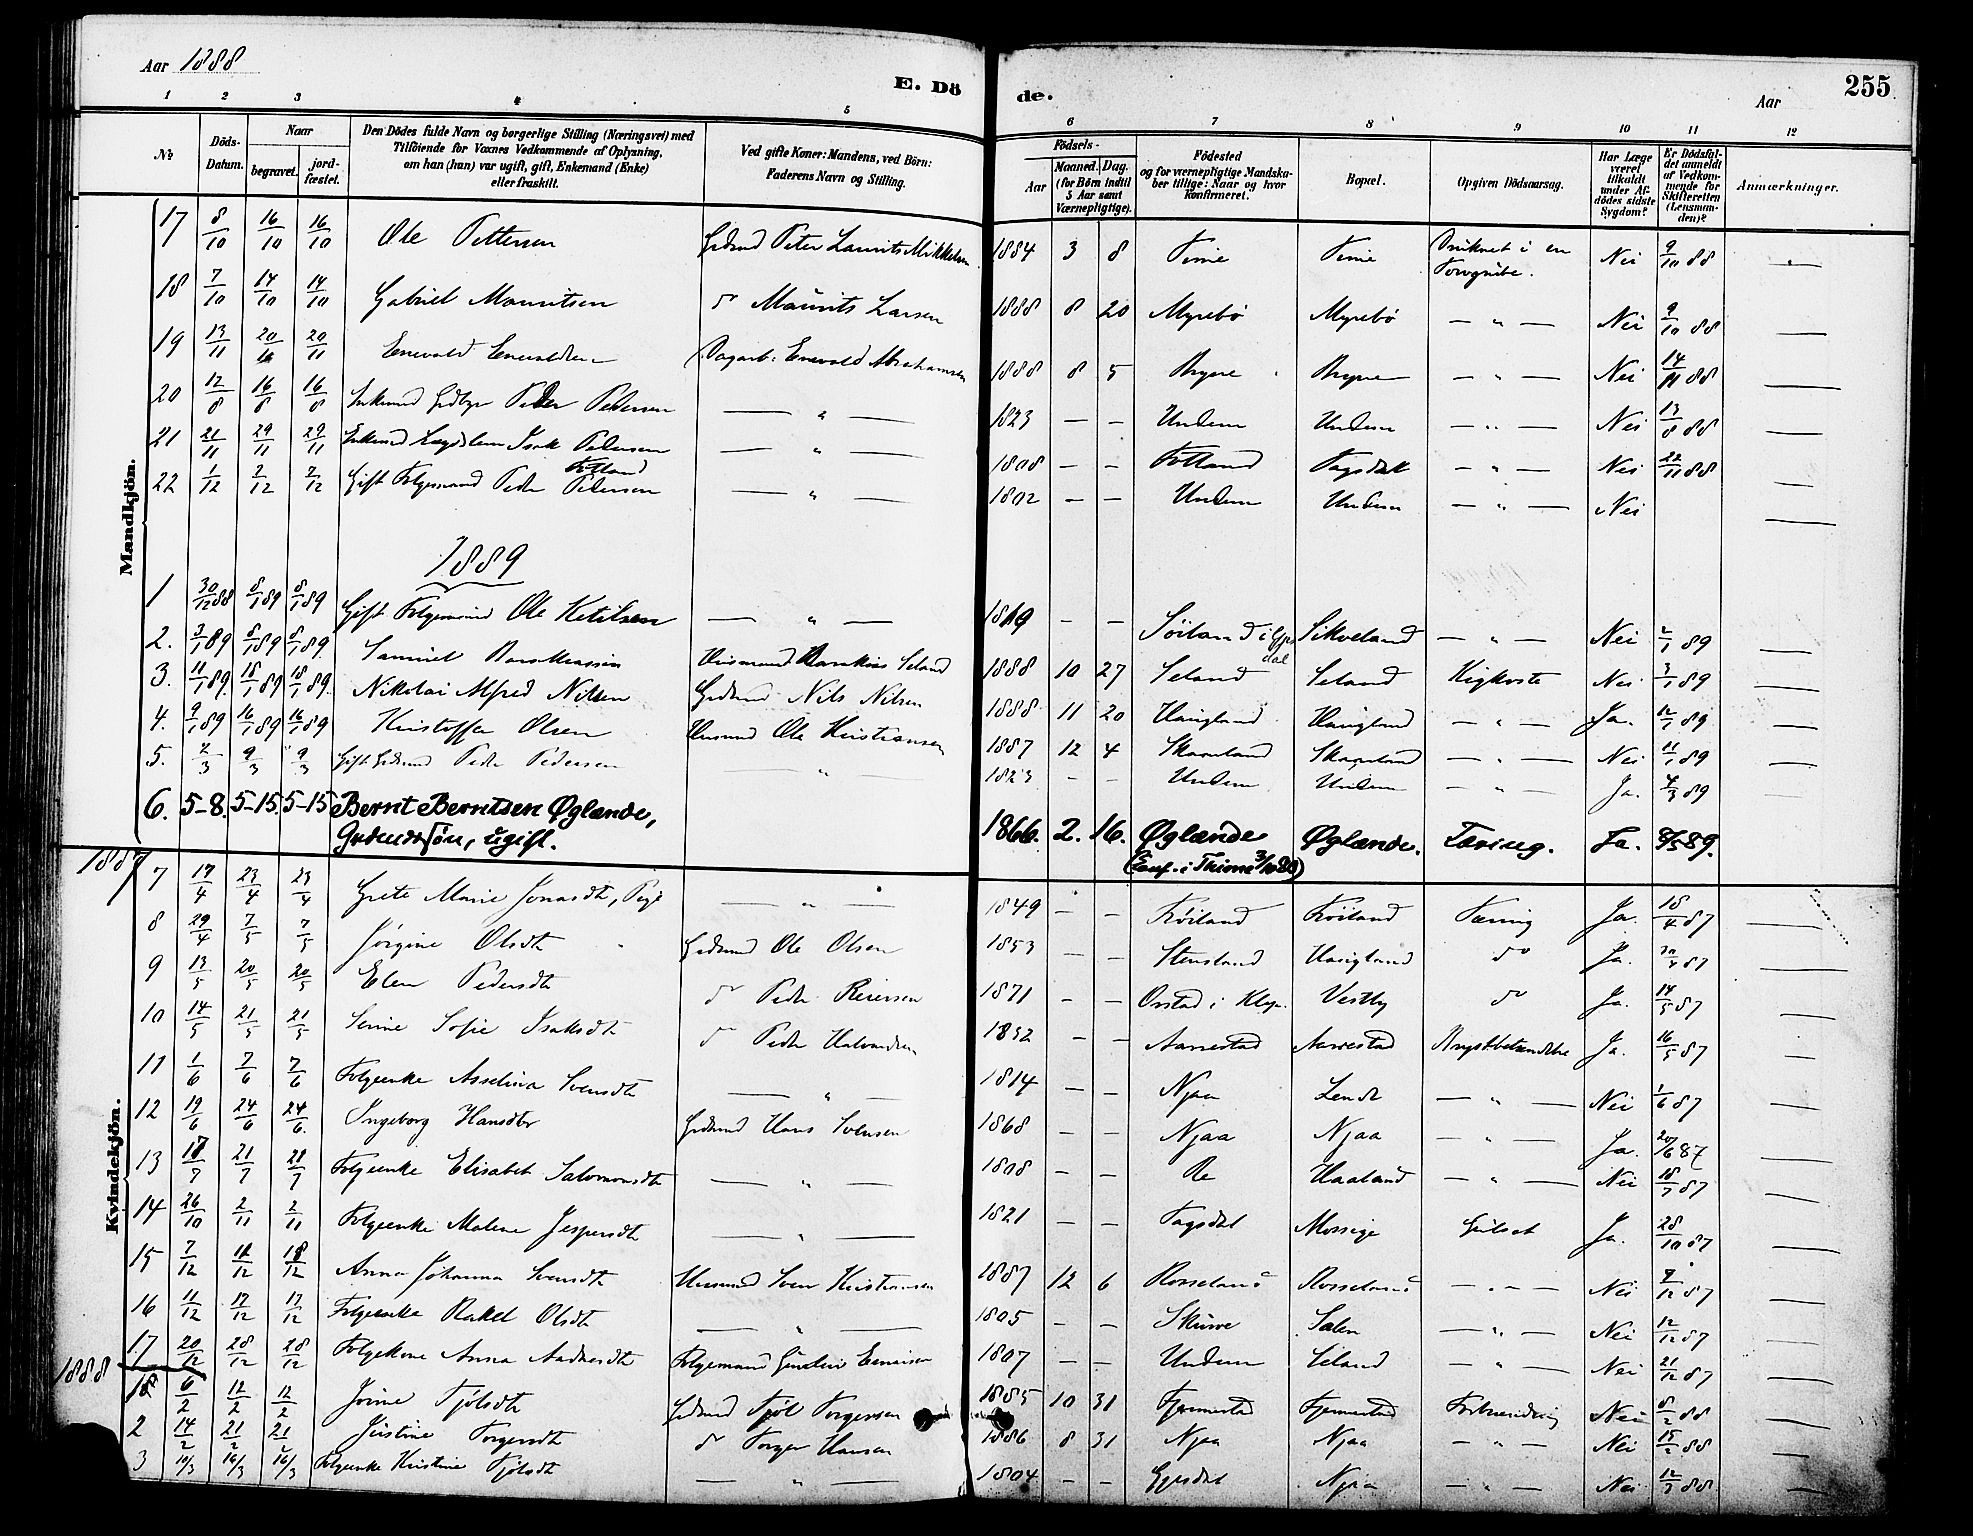 Aar 1888
E. Dö
de.
Aar
255
1 2 3 4 5 6 7 8 9 10 11 12
No
Döds-Datum.
Naar
begravet.
jord-fæstet.
Den Dödes fulde Navn og borgerlige Stilling (Næringsvei) med
Tilföiende for Voxnes Vedkommende af Oplysning,
om han (hun) var ugift, gift, Enkemand (Enke)
eller fraskilt.
Ved gifte Koner: Mandens, ved Börn:
Faderens Navn og Stilling.
Födsels-
Aar
Maaned. Dag.
(for Börn indtil
5 Aar samt
Værnepligtige).
Födested
og for værnepligtige Mandska-
ber tillige: Naar og hvor
Konfirmeret.
Bopæl.
Opgiven Dödsaarsag.
Har Læge
været
tilkaldt
under Af-
dödes sidste
Sygdom?
Er Dödsfal-
det anmeldt
af Vedkom-
mende for
Skifteretten
(Lensman-
den)?
Anmærkninger.
Mandkjön.
17 8/10 16/10 16/10 Ole Pettersen Gdmd Peter Laurits Mikkelsen 1884 3 8 Time Time Druknet i en Torvgrube. Nei 9/10 88
18 7/10 14/10 14/10 Gabriel Mauritsen do Maurits Larsen 1888 8 20 Myrebö Myrebö — " — Nei 9/10 88
19 13/11 20/11 20/11 Enevald Enevaldsen Dagarb: Enevald Abrahamsen 1888 8 5 Bryne Bryne — " — Nei 14/11 88
20 12/8 16/8 16/8 Enkemd Gdbr Peder Pedersen — " — 1823 — — Undem Undem — " — Nei 13/8 88
21 21/11 29/11 29/11 Enkemd Lægdslem Isak Pedersen Fotland — " — 1808 — — Fotland Fagsdal — " — Nei 22/11 88
22 1/12 7/12 7/12 Gift Folgemand Peder Pedersen — " — 1802 — — Undem Undem — " — Nei
1889
1 30/12 88 8/1 89 8/1 89 Gift Folgemand Ole Ketilsen — " — 1819 — — Söiland i Gjesdal Sikveland — " — Nei 2/1 89
2. 3/1 89 8/1 89 8/1 89 Samuel Barskiassen Husmand Barskias Seland 1888 10 27 Seland Seland Kighoste Nei 3/1 89
3. 11/1 89. 18/1 89 18/1 89. Nikolai Alfred Nilsen Gdmd Nils Nilsen 1888 11 20 Haugland Haugland — " — Ja. 12/1 89
4. 9/1 89 16/1 89 16/1 89 Kristoffer Olsen Husmd Ole Kristiansen 1887 12 4 Skarland Skarland — " — Nei 11/1 89
5. 2/3 9/3 9/3 Gift Gdmd Peder Pedersen — " — 1823 — — Undem Undem — " — Ja. 4/3 89
6. 5-8. 5-15. 5-15 Bernt Berntsen Øglænde,
Grdmdssön, ugift.
1866. 2. 16. Øglænde
(Conf. i Thime 3/10 80)
Øglænde. Tæring. Ja. 8/5 89.
Kvindekjön.
1887
7 17/4 23/4 23/4 Grete Marie Jonasdtr, Pige — " — 1849 — — Tröiland Tröiland Tæring Ja. 18/4 87
8 29/4 7/5 7/5 Jörgine Olsdtr Gdmd Ole Olsen 1853 — — Stensland Haugland do Ja. 30/4 87
9 13/5 20/5 20/5 Elen Pedersdtr do Peder Reiersen 1871 — — Orstad i Klep. Vestly do Ja. 14/5 87
10 14/5 21/5 21/5 Serine Sofie Isaksdtr do Peder Halvardsen 1832 — — Aarrestad Aarrestad Brystbetændelse Ja. 16/5 87
11 1/6 7/6 7/6 Folgeenke Asselina Svensdtr — " — 1814 — — Njaa Lende — " — Nei 1/6 87
12 19/6 24/6 24/6. Ingeborg Hansdtr Gdmd Hans Svensen 1868 — — Njaa Njaa — " — Ja. 20/6 87
13 17/7 21/7 21/7 Folgeenke Elisabet Salomonsdtr — " — 1808 — — Re Haaland — " — Nei 18/7 87
14 26/10 2/11 2/11 Folgeenke Malene Jespersdtr — " — 1821 — — Fagsdal Mossige Gulsot Ja. 28/10 87
15 7/12 11/12 18/12 Anna Johanna Svensdtr Husmd Sven Kristiansen 1887 12 6 Rosseland Rosseland — " — Nei 9/12 87
16 11/12 17/12 17/12 Folgeenke Rakel Olsdtr — " — 1805 — — Skurve Sælen — " — Nei 12/12 87
17 20/12 28/12 28/12 Folgekone Anna Aadnesdtr Folgemand Gunleiv 1807 — — Undem Seland — " — Nei 21/12 87
1888
1 6/2 12/2 12/2 Jorine Tjölsdtr Gdmd Tjöl Torgersen 1885 10 31 Fjermestad Fjermestad Forbrænding Nei 8/2 88
2 14/2 21/2 21/2 Justine Torgersdtr do Torger Hansen 1886 8 31 Njaa Njaa — " — Nei 15/2 88
3 10/3 16/3 16/3 Folgeenke Kristine Tjölsdtr — " — 1804 — — Gjesdal Njaa Nei 12/3 88